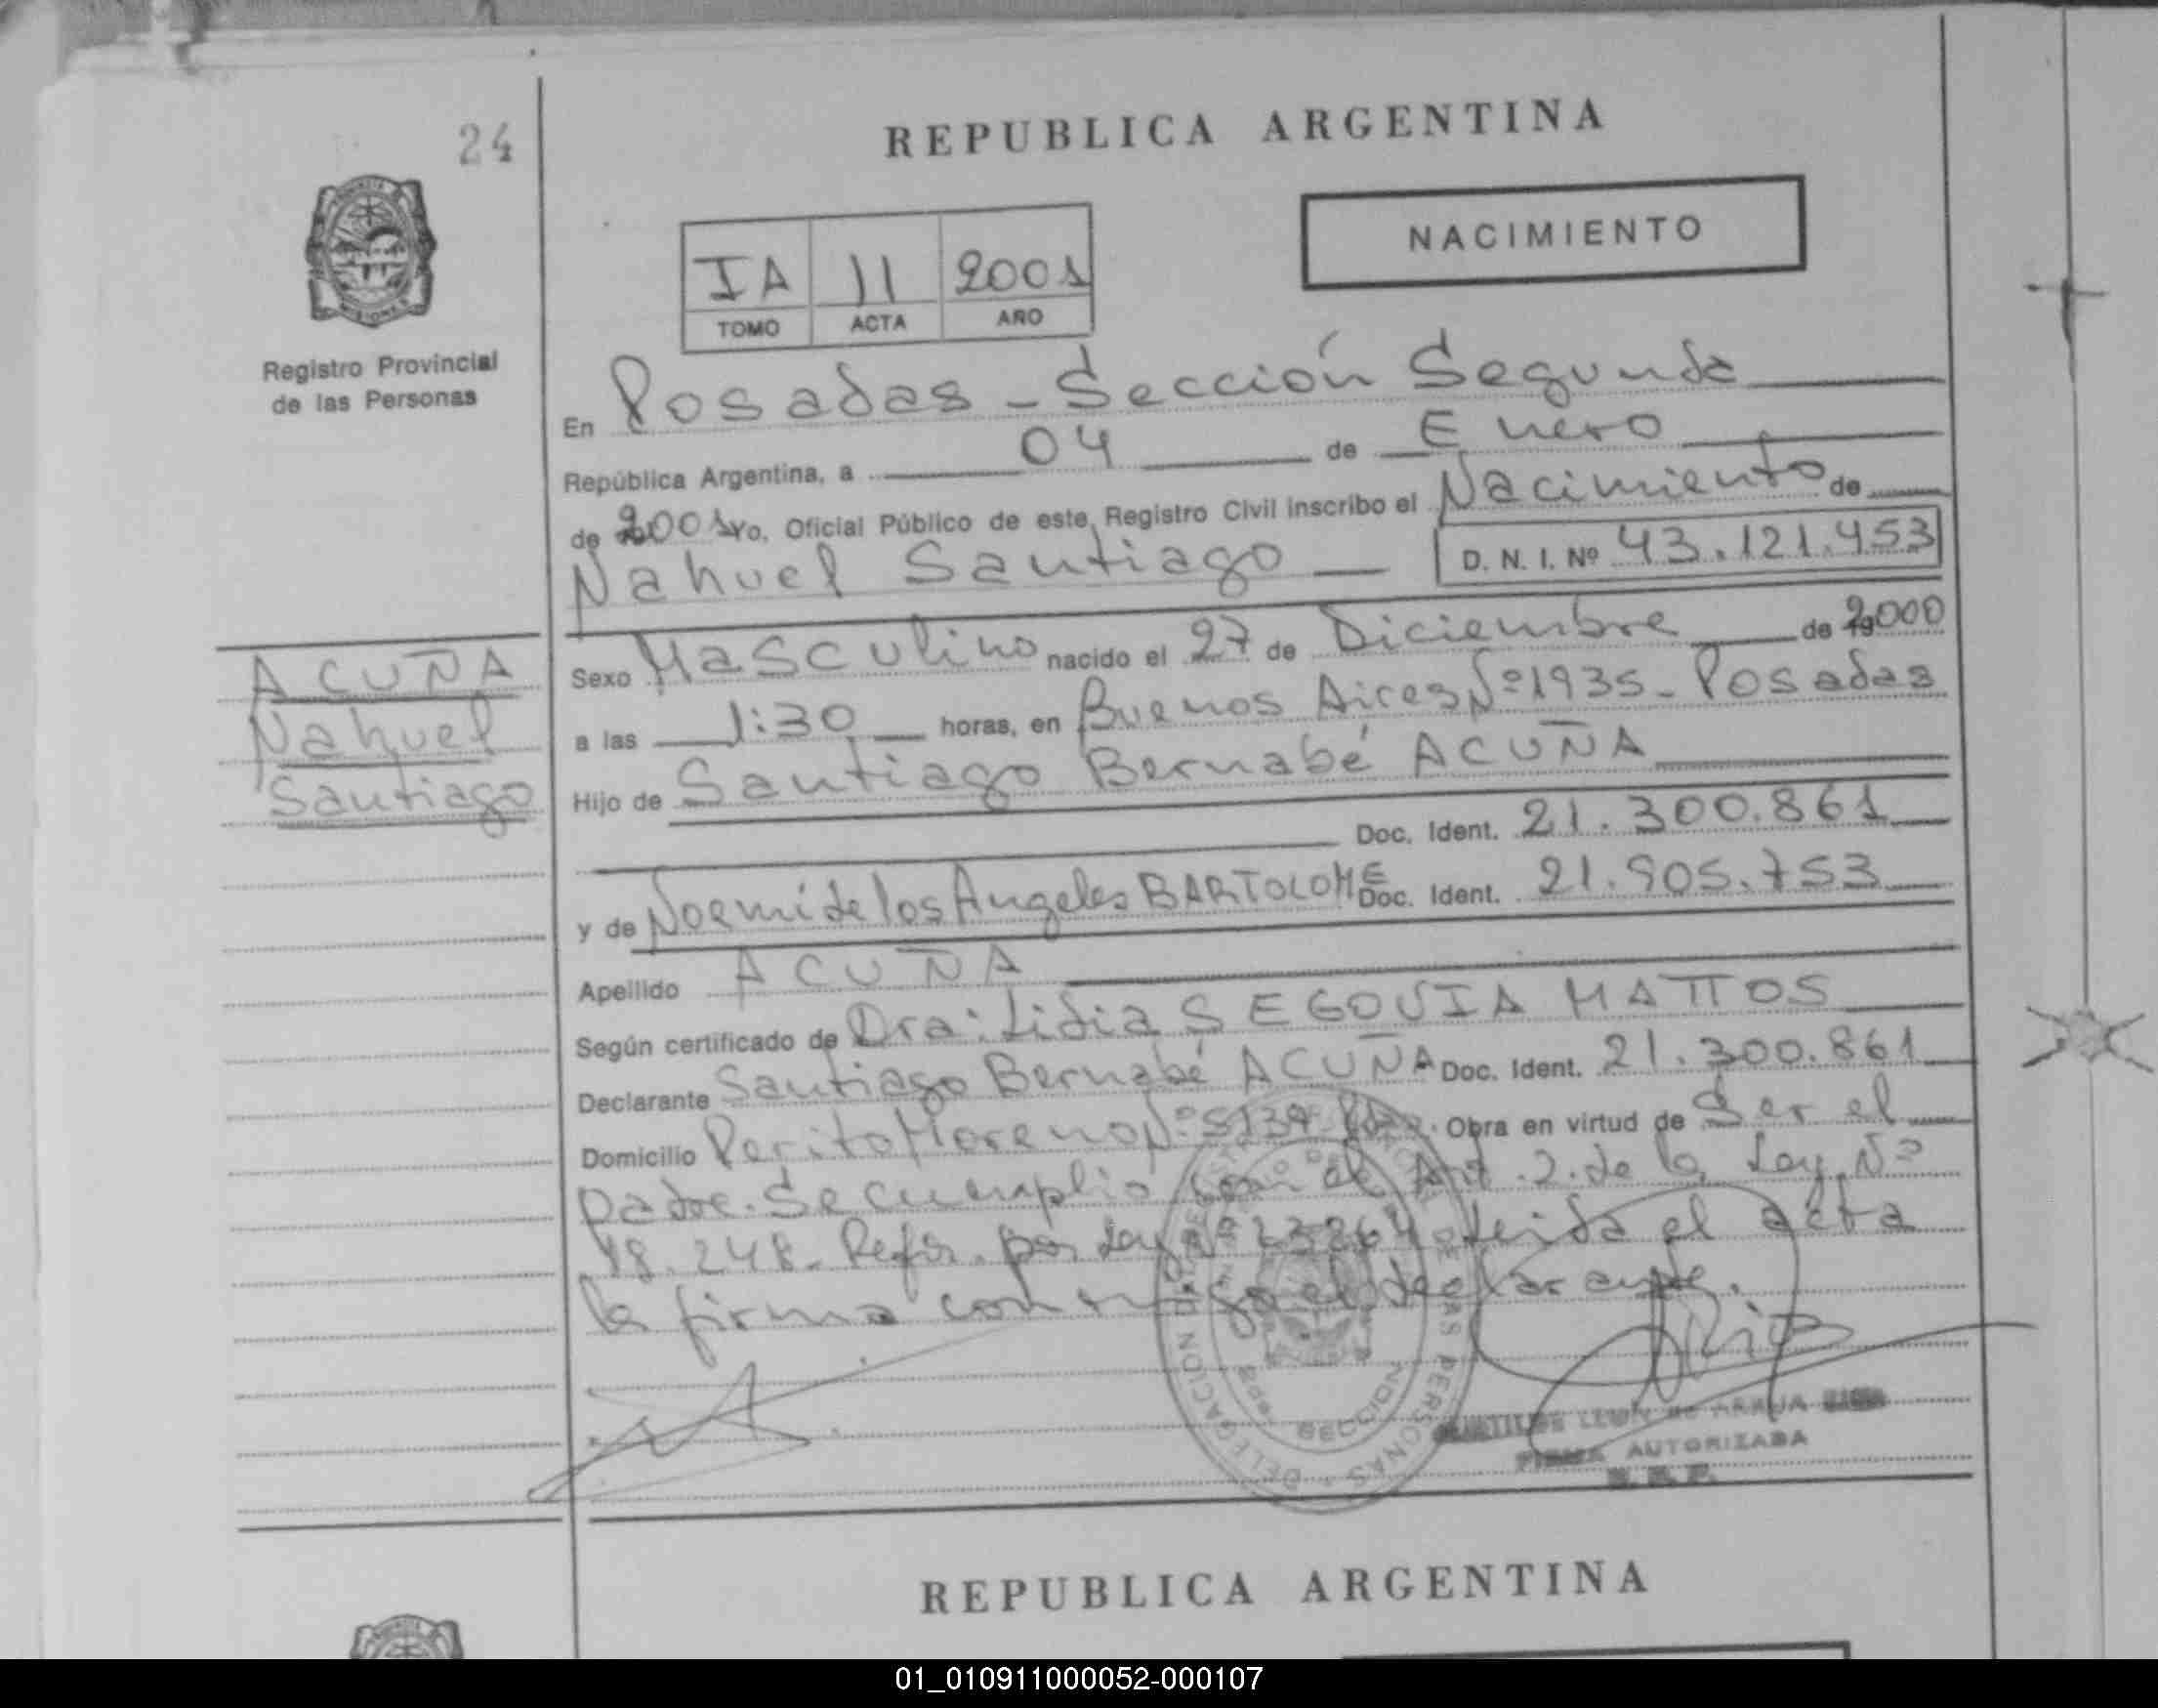 24
REPUBLICA ARGENTINA
NACIMIENTO
IA 11 2001
TOMO ACTA AÑO
Registro Provincial
de las Personas
En Posadas - Sección Segunda
República Argentina, a 04 de Enero
de 2001 Yo, Oficial Público de este Registro Civil inscribo el Nacimiento de
Nahuel Santiago D. N. I. Nº 43.121.453
Sexo Masculino nacido el 27 de Diciembre de 2000
ACUÑA
Nahuel
Santiago
a las 1:30 horas, en Buenos Aires Nº 1935 - Posadas
Hijo de Santiago Bernabé ACUÑA
Doc. Ident. 21.300.861
y de Noemi de los Angeles BARTOLOME Doc. Ident. 21.905.753
Apellido ACUÑA
Según certificado de Dra: Lidia SEGOVIA MATTOS
Declarante Santiago Bernabé ACUÑA Doc. Ident. 21.300.861
Domicilio Perito Moreno Nº 5139 Obra en virtud de Ser el
padre. Se cumplio con el Art. 2. de la Ley Nº
18.248. Refor. por Ley Nº 23264 leida el acta
la firma conmigo el declarante.
FIRMA AUTORIZADA
REPUBLICA ARGENTINA
01_010911000052-000107